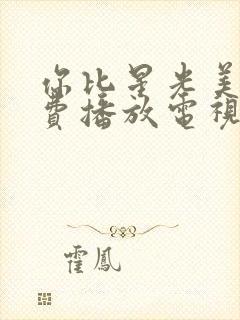 你比星光美
費播放電視
霍鳳